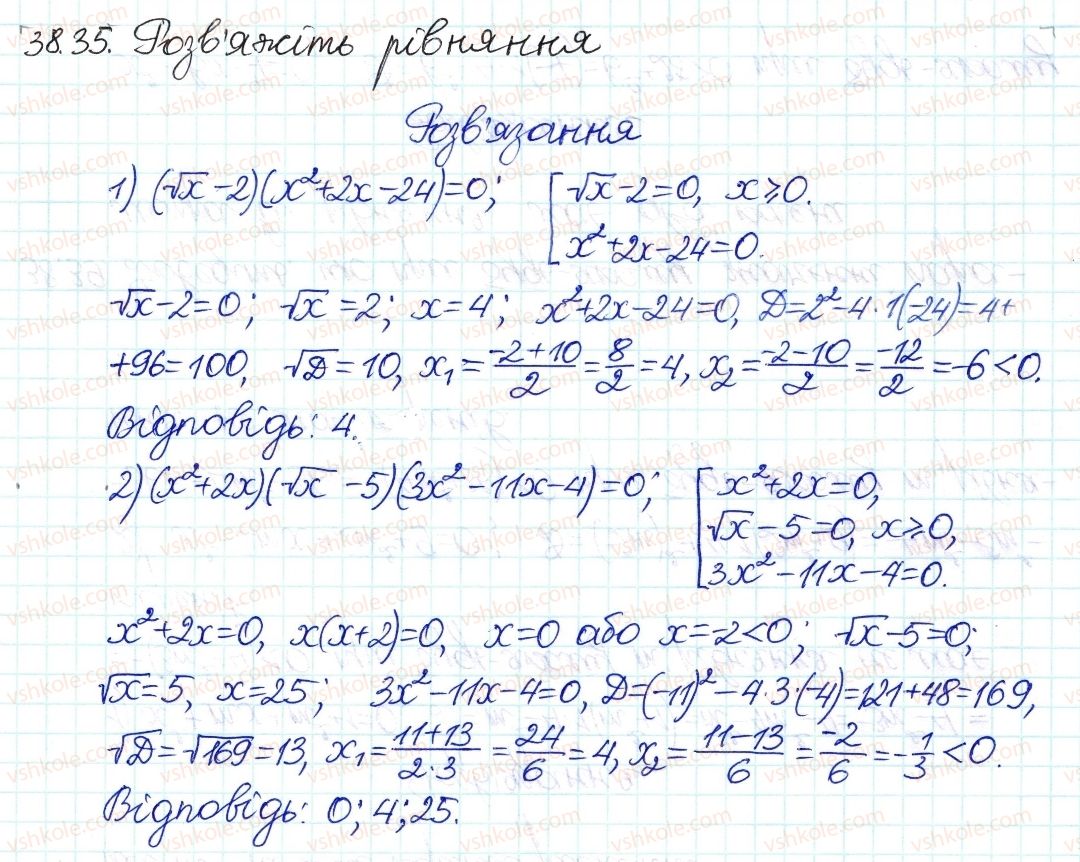 38.35. Розв'яжіть рівняння
Розв'язання
1) (√x -2)(x²+2x-24)=0; [√x-2=0, x≥0.
x²+2x-24=0.
√x-2=0; √x =2; x=4; x²+2x-24=0, D=2²-4·1(-24)=4+
+96=100, √D=10, x₁=(-2+10)/2=8/2=4, x₂=(-2-10)/2=-12/2=-6<0.
Відповідь: 4.
2) (x²+2x)(√x -5)(3x²-11x-4)=0; [x²+2x=0,
√x-5=0, x≥0,
3x²-11x-4=0.
x²+2x=0, x(x+2)=0, x=0 або x=-2<0; √x-5=0;
√x=5, x=25; 3x²-11x-4=0, D=(-11)²-4·3·(-4)=121+48=169,
√D=√169=13, x₁=(11+13)/(2·3)=24/6=4, x₂=(11-13)/6=-2/6=-1/3<0.
Відповідь: 0; 4; 25.